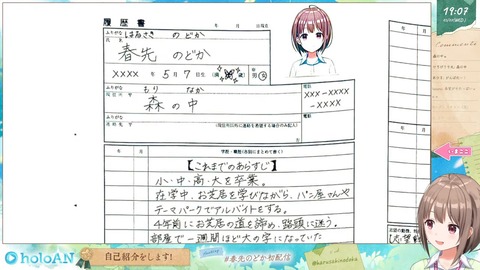 19:07
履歴書
年 月 日現在
ふりがな はるさき のどか
氏名
春先 のどか
XXXX 年 5月 7日生
男
ふりがな もり なか
森の中
電話
XXX-XXXX
-XXXX
ふりがな
電話
年 月 学歴・職歴(各別にまとめて書く)
【これまでのあらすじ】
小・中・高・大を卒業。
在学中、お芝居を学びながら、パン屋さんや
テーマパークでアルバイトをする。
4年前にお芝居の道を諦め、路頭に迷う。
部屋で一週間ほど大の字になっていた
Comments
holoAN
自己紹介をします!
#春先のどか初配信
@harusakinodoka